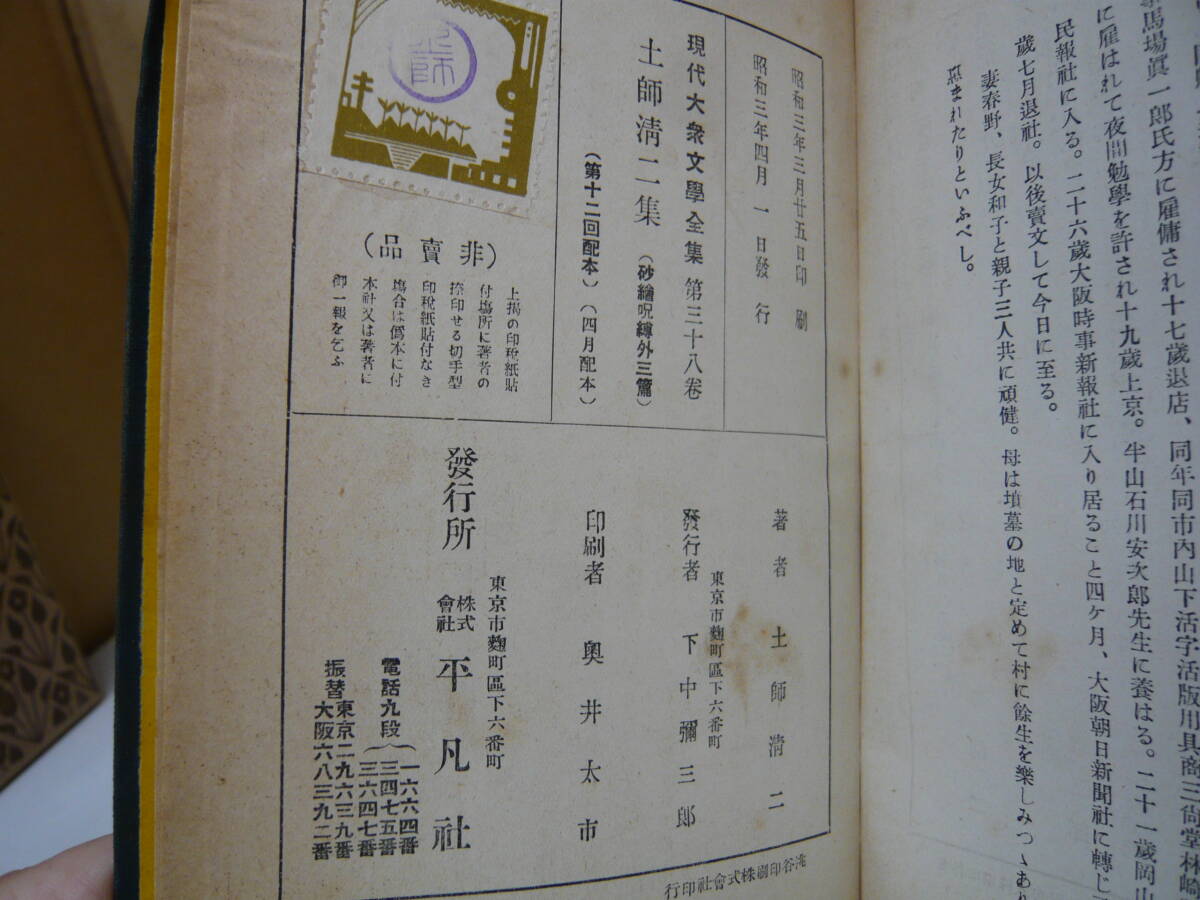 馬場眞一郎氏方に雇傭され十七歲退店、同年同市內山下活字活版用具商三尙堂林崎
に雇はれて夜間勉學を許され十九歲上京。半山石川安次郎先生に養はる。二十一歲岡山
民報社に入る。二十六歲大阪時事新報社に入り居ること四ケ月、大阪朝日新聞社に轉じ
歲七月退社。以後賣文して今日に至る。
妻春野、長女和子と親子三人共に頑健。母は墳墓の地と定めて村に餘生を樂しみつゝあり
惠まれたりといふべし。
昭和三年三月廿五日印刷
昭和三年四月一日發行
現代大衆文學全集 第三十八卷
土師淸二集(砂繪呪縛外三篇)
(第十二回配本)(四月配本)
師
(非賣品)
上揭の印稅紙貼
付塲所に著者の
捺印せる切手型
印稅紙貼付なき
塲合は僞本に付
本社又は著者に
御一報を乞ふ
著者 土師淸二
東京市麴町區下六番町
發行者 下中彌三郎
印刷者 奧井太市
東京市麴町區下六番町
發行所 株式會社 平凡社
電話九段 一六六四番
三四七五番
三六四七番
振替 東京二九六三九番
大阪六八三九二番
谷印刷株式會社印行